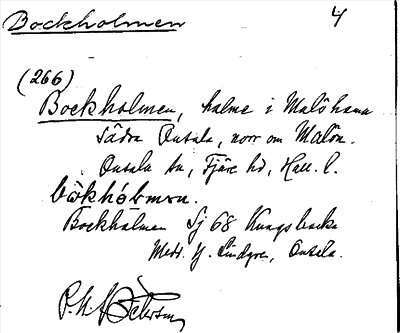 Bockholmen 4
(266)
Bockholmen, holme i Malöhamn
södra Onsala, norr om Malön.
Onsala sn, Fjäre hd, Hall. l.
båkhòlmən.
Bockholmen Sj 68 Kungsbacka
Medd. Hj. Lindgren, Onsala.